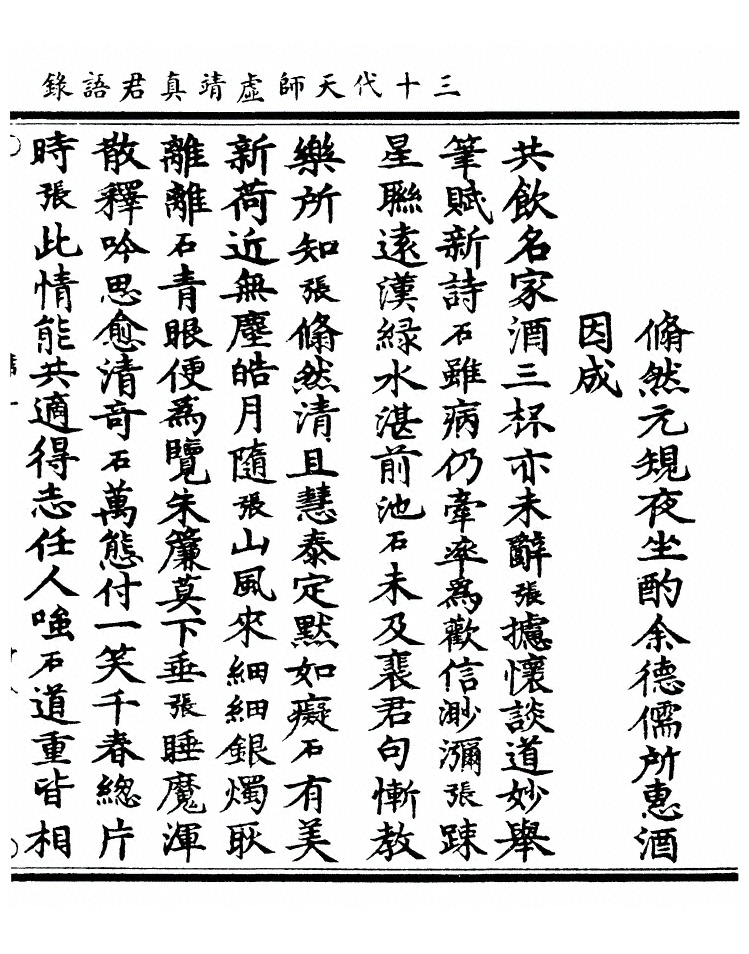 三十代天師虛靖真君語錄
翛然元規夜坐酌余德儒所惠酒
因成
共飲名家酒三杯亦未辭張攄懷談道妙舉
筆賦新詩石雖病仍牽率為歡信渺瀰張踈
星聯遠漢綠水湛前池石未及裴君句慚教
樂所知張翛然清且慧泰定默如癡石有美
新荷近無塵皓月隨張山風來細細銀燭耿
離離石青眼便為覽朱簾莫下垂張睡魔渾
散釋吟思愈清奇石萬態付一笑千春總片
時張此情能共適得志任人嗤石道重皆相